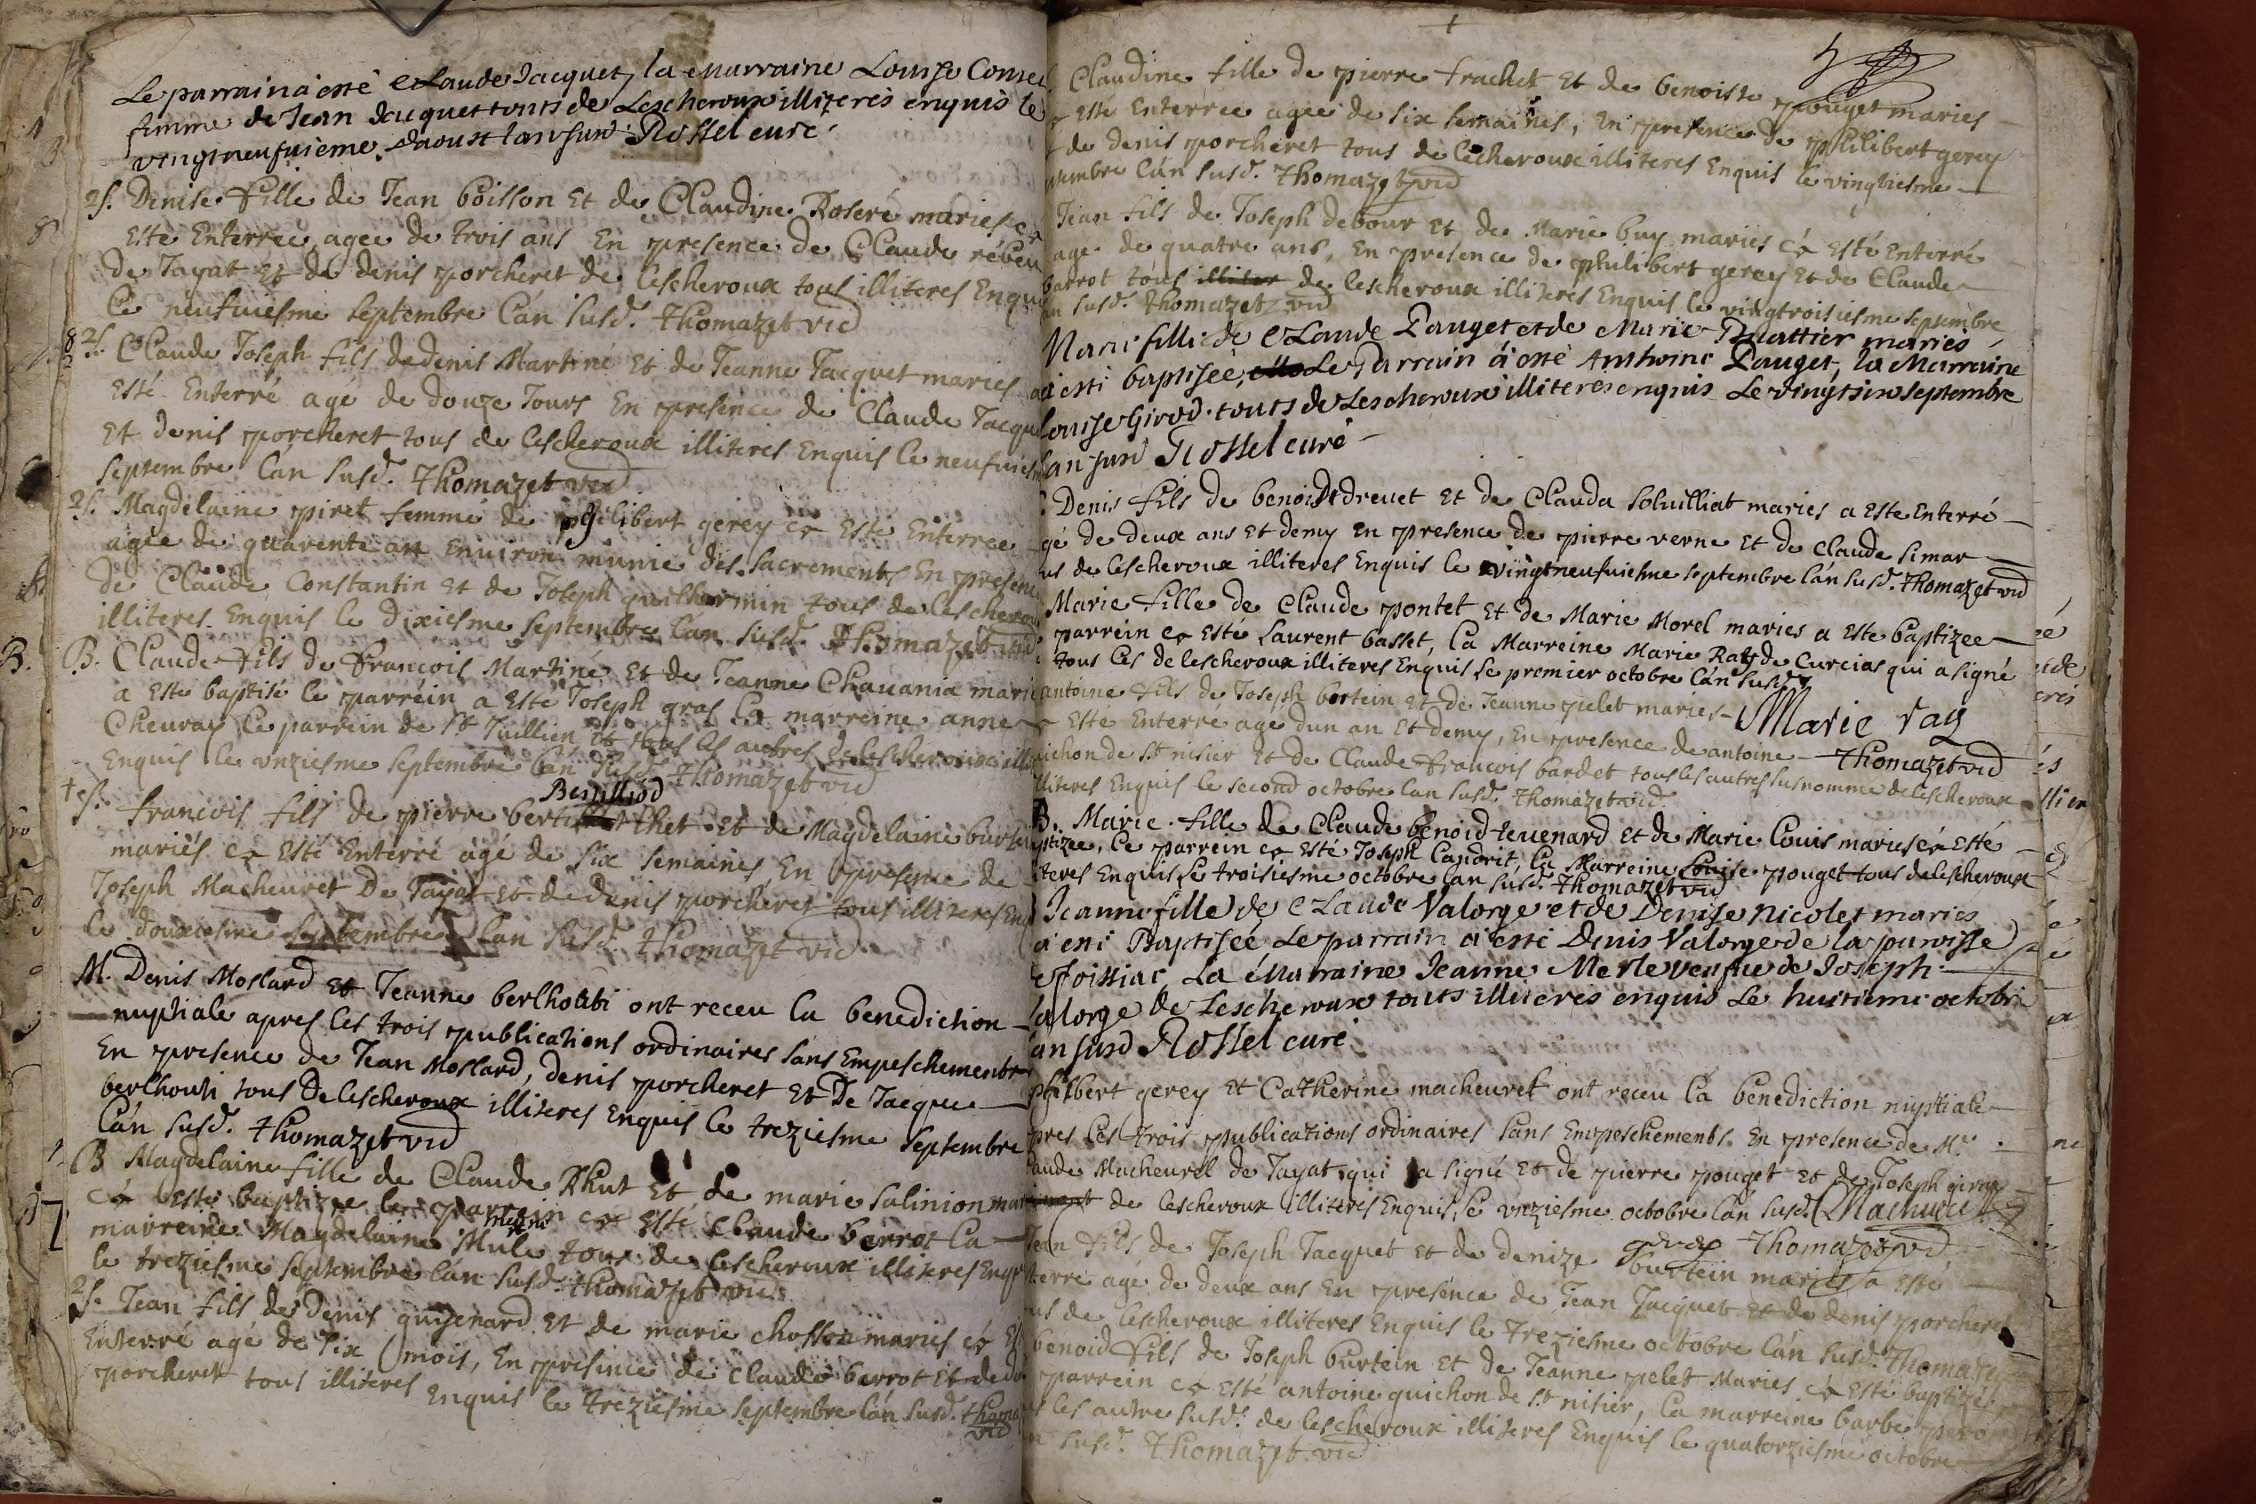 Le parrain à esté Claude Jacquet, la Marraine Louise
femme de Jean Jacquet touts de Lescheroux illiteres enquis le
vingtneufuieme daoust lan susd Rossel curé
2s. Denise fille de Jean boisson Et de Claudine Roseré mariés ea
Esté Enterrée, agee de trois ans En presence de Claude
de Jayat Et de denis porcheret de lescheroux tous illiteres
le neufuiesme septembre lan susd. Thomazet vic
2s. Claude Joseph fils de denis Martiné Et de Jeanne Jacquet mariés
Esté Enterré agé de douze Jours En presence de Claude
Et denis porcheret tous de lescheroux illiteres Enquis le
septembre lan susd. Thomazet vic
2s. Magdelaine piret femme de philibert gerey ea Esté Enterree
agée de quarente an Enuiron munie des sacrements En
de Claude Constantin Et de Joseph guillermin tous de
illiteres Enquis le Dixiesme septembre lan susd. Thomazet vic
B. Claude fils de francois Martiné Et de Jeanne Chauanix
a Este baptisé le parréin a Este Joseph gras la marreine anne
Cheuray le parrein de St Juillien Et tous les autres de lescheroux
Enquis le vnziesme septembre lan susd. Thomazet vic
+ s. francois fils de pierre Et de Magdelaine
mariés ea Esté Enterré agé de six semaines, En presence de
Joseph Macheuret De Jayat Et de denis porcheret tous illiteres
le douxiesme septembre lan susd. Thomazet vic
M. Denis Mollard Et Jeanne ont receu la benediction
nuptiale apres les trois publications ordinaires sans Empeschements
En presence de Jean Mollard, denis porcheret Et De Jacque
tous De lescheroux illiteres Enquis le treziesme septembre
lan susd. Thomazet vic
B Magdelaine fille de Claude Rhut Et de marie salinion
ea Esté baptizee le parrein ea Esté Claude berrot la
marreine Magdelaine tous de lescheroux illiteres
le treziesme septembre lan susd. Thomazet vic
2s. Jean fils de Denis guigenard Et de marie chosson mariés ea
Enterré agé de six mois, En presence de Claude berrot Et de
porcheret tous illiteres Enquis le treziesme septembre lan susd.
vic
Claudine fille de pierre trachet Et de benoiste pouget mariés
Este Enterree agee de six semaines, En presence de philibert gerey
de denis porcheret tous de lescheroux illiteres Enquis le vingtiesme
lan susd. Thomazet vic
Jean fils de Joseph debour Et de Marie buy mariés ea Esté Enterré
age de quatre ans, En presence de philibert gerey Et de Claude
barrot tous de lescheroux illiteres Enquis le vingtroisiesme septembre
susd. Thomazet vic
Marie fille de Claude Pauget et de Marie mariés
à esté baptisée, Le Parrain à esté Anthoine Pauget, la Marraine
Louise Girod touts de Lescheroux illiteres enquis Le vingtsix septembre
lan susd Rossel curé
Denis fils de benoid dreuet Et de Clauda soluilliat mariés a Este Enterré
de deux ans Et demy En presence de pierre verne Et de Claude simar
de lescheroux illiteres Enquis le vingtneufuiesme septembre lan susd. Thomazet vic
Marie fille de Claude pontet Et de Marie Morel mariés a Este baptizee
parrein ea Esté Laurent basset, la Marreine Marie Ray de Curcias qui a signé
tous les de lescheroux illiteres Enquis le premier octobre lan susd.
antoine fils de Joseph bertein et de Jeanne pelet mariés
Marie ray
Este Enterre age dun an Et demy, En presence de antoine
Thomazet vic
de St nisier Et de Claude francois bardet tous les autres susnomme de lescheroux
Enquis le second octobre lan susd. Thomazet vic
B. Marie fille de Claude benoid teuenard Et de Marie Louis mariés ea Esté
le parrein ea Esté Joseph la Marreine Louise pouget tous de lescheroux
Enquis le troisiesme octobre lan susd. Thomazet vic
Jeanne fille de Claude Valorge et de Denise Nicolet mariés
à esté Baptisée Le parrain à esté Denis Valorge de la paroisse
foissiac La Marraine Jeanne Merle veufue de Joseph
Valorge de Lescheroux touts illiteres enquis Le huitieme octobre
lan susd Rossel curé
philbert gerey Et Catherine macheuret ont receu la benediction nuptiale
les trois publications ordinaires sans Empeschements En presence de Mr
Macheurel de Jayat qui a signé Et de pierre pouget Et de Joseph
de lescheroux illiteres Enquis le vnziesme octobre lan susd.
Thomazet vic
Jean fils de Joseph Jacquet Et de denize burtein mariés a Esté
agé de deux ans En presence de Jean Jacquet Et de denis porcheret
de lescheroux illiteres Enquis le treziesme octobre lan susd.
benoid fils de Joseph burtein Et de Jeanne pelet Mariés ea Esté baptizé
parrein ea Esté antoine guichon de St nisier, la marreine barbe
les autre susd. de lescheroux illiteres Enquis le quatorziesme octobre
susd. Thomazet vic